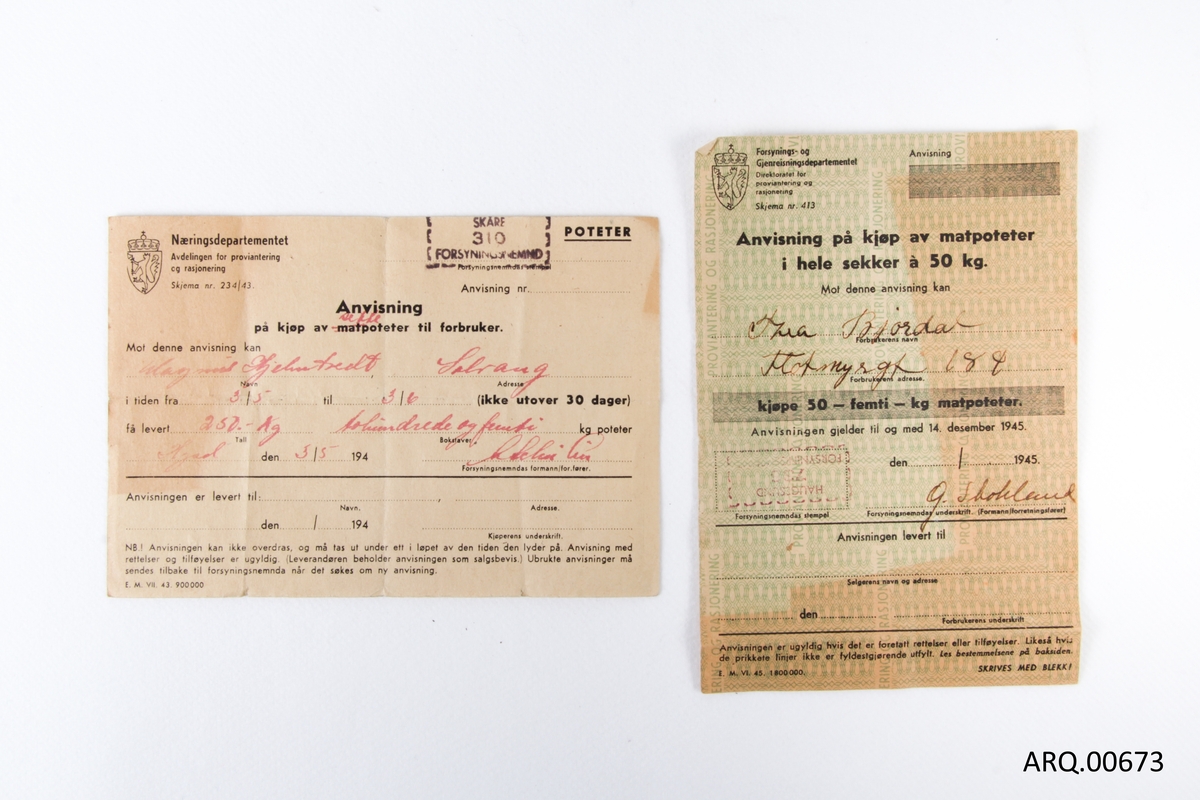 Næringsdepartementet
Avdelingen for proviantering
og rasjonering
Skjema nr. 234/43.
SKÅRE
310
FORSYNINGSNEMND
Forsyningsnemndas stempel
POTETER
Anvisning nr.
Anvisning
sette
på kjøp av matpoteter til forbruker.
Mot denne anvisning kan
Magnus Solvang
Navn Adresse
i tiden fra 3/5 til 3/6 (ikke utover 30 dager)
få levert 250.- Kg tohundrede og femti kg poteter
Tall Bokstaver
den 3/5 194
Forsyningsnemndas formann/for.fører.
Anvisningen er levert til:
Navn. Adresse.
den / 194
Kjøperens underskrift.
NB! Anvisningen kan ikke overdras, og må tas ut under ett i løpet av den tiden den lyder på. Anvisning med
rettelser og tilføyelser er ugyldig. (Leverandøren beholder anvisningen som salgsbevis.) Ubrukte anvisninger må
sendes tilbake til forsyningsnemnda når det søkes om ny anvisning.
E. M. VII. 43. 900 000
Forsynings- og
Gjenreisningsdepartementet
Direktoratet for
proviantering og
rasjonering
Skjema nr. 413
Anvisning
Anvisning på kjøp av matpoteter
i hele sekker à 50 kg.
Mot denne anvisning kan
Thea Bjørdal
Forbrukerens navn
Flotmyrgt 68
Forbrukerens adresse.
kjøpe 50 – femti – kg matpoteter.
Anvisningen gjelder til og med 14. desember 1945.
HAUGESUND
FORSYN
den / 1945.
G. Stokland
Forsyningsnemndas stempel Forsyningsnemndas underskrift. (Formann/forretningsfører)
Anvisningen levert til
Selgerens navn og adresse
den
Forbrukerens underskrift
Anvisningen er ugyldig hvis det er foretatt rettelser eller tilføyelser. Likeså hvis
de prikkete linjer ikke er fyldestgjørende utfylt. Les bestemmelsene på baksiden.
E. M. VI. 45. 1 800 000. SKRIVES MED BLEKK!
PROVIANTERING OG RASJONERING
ARQ.00673